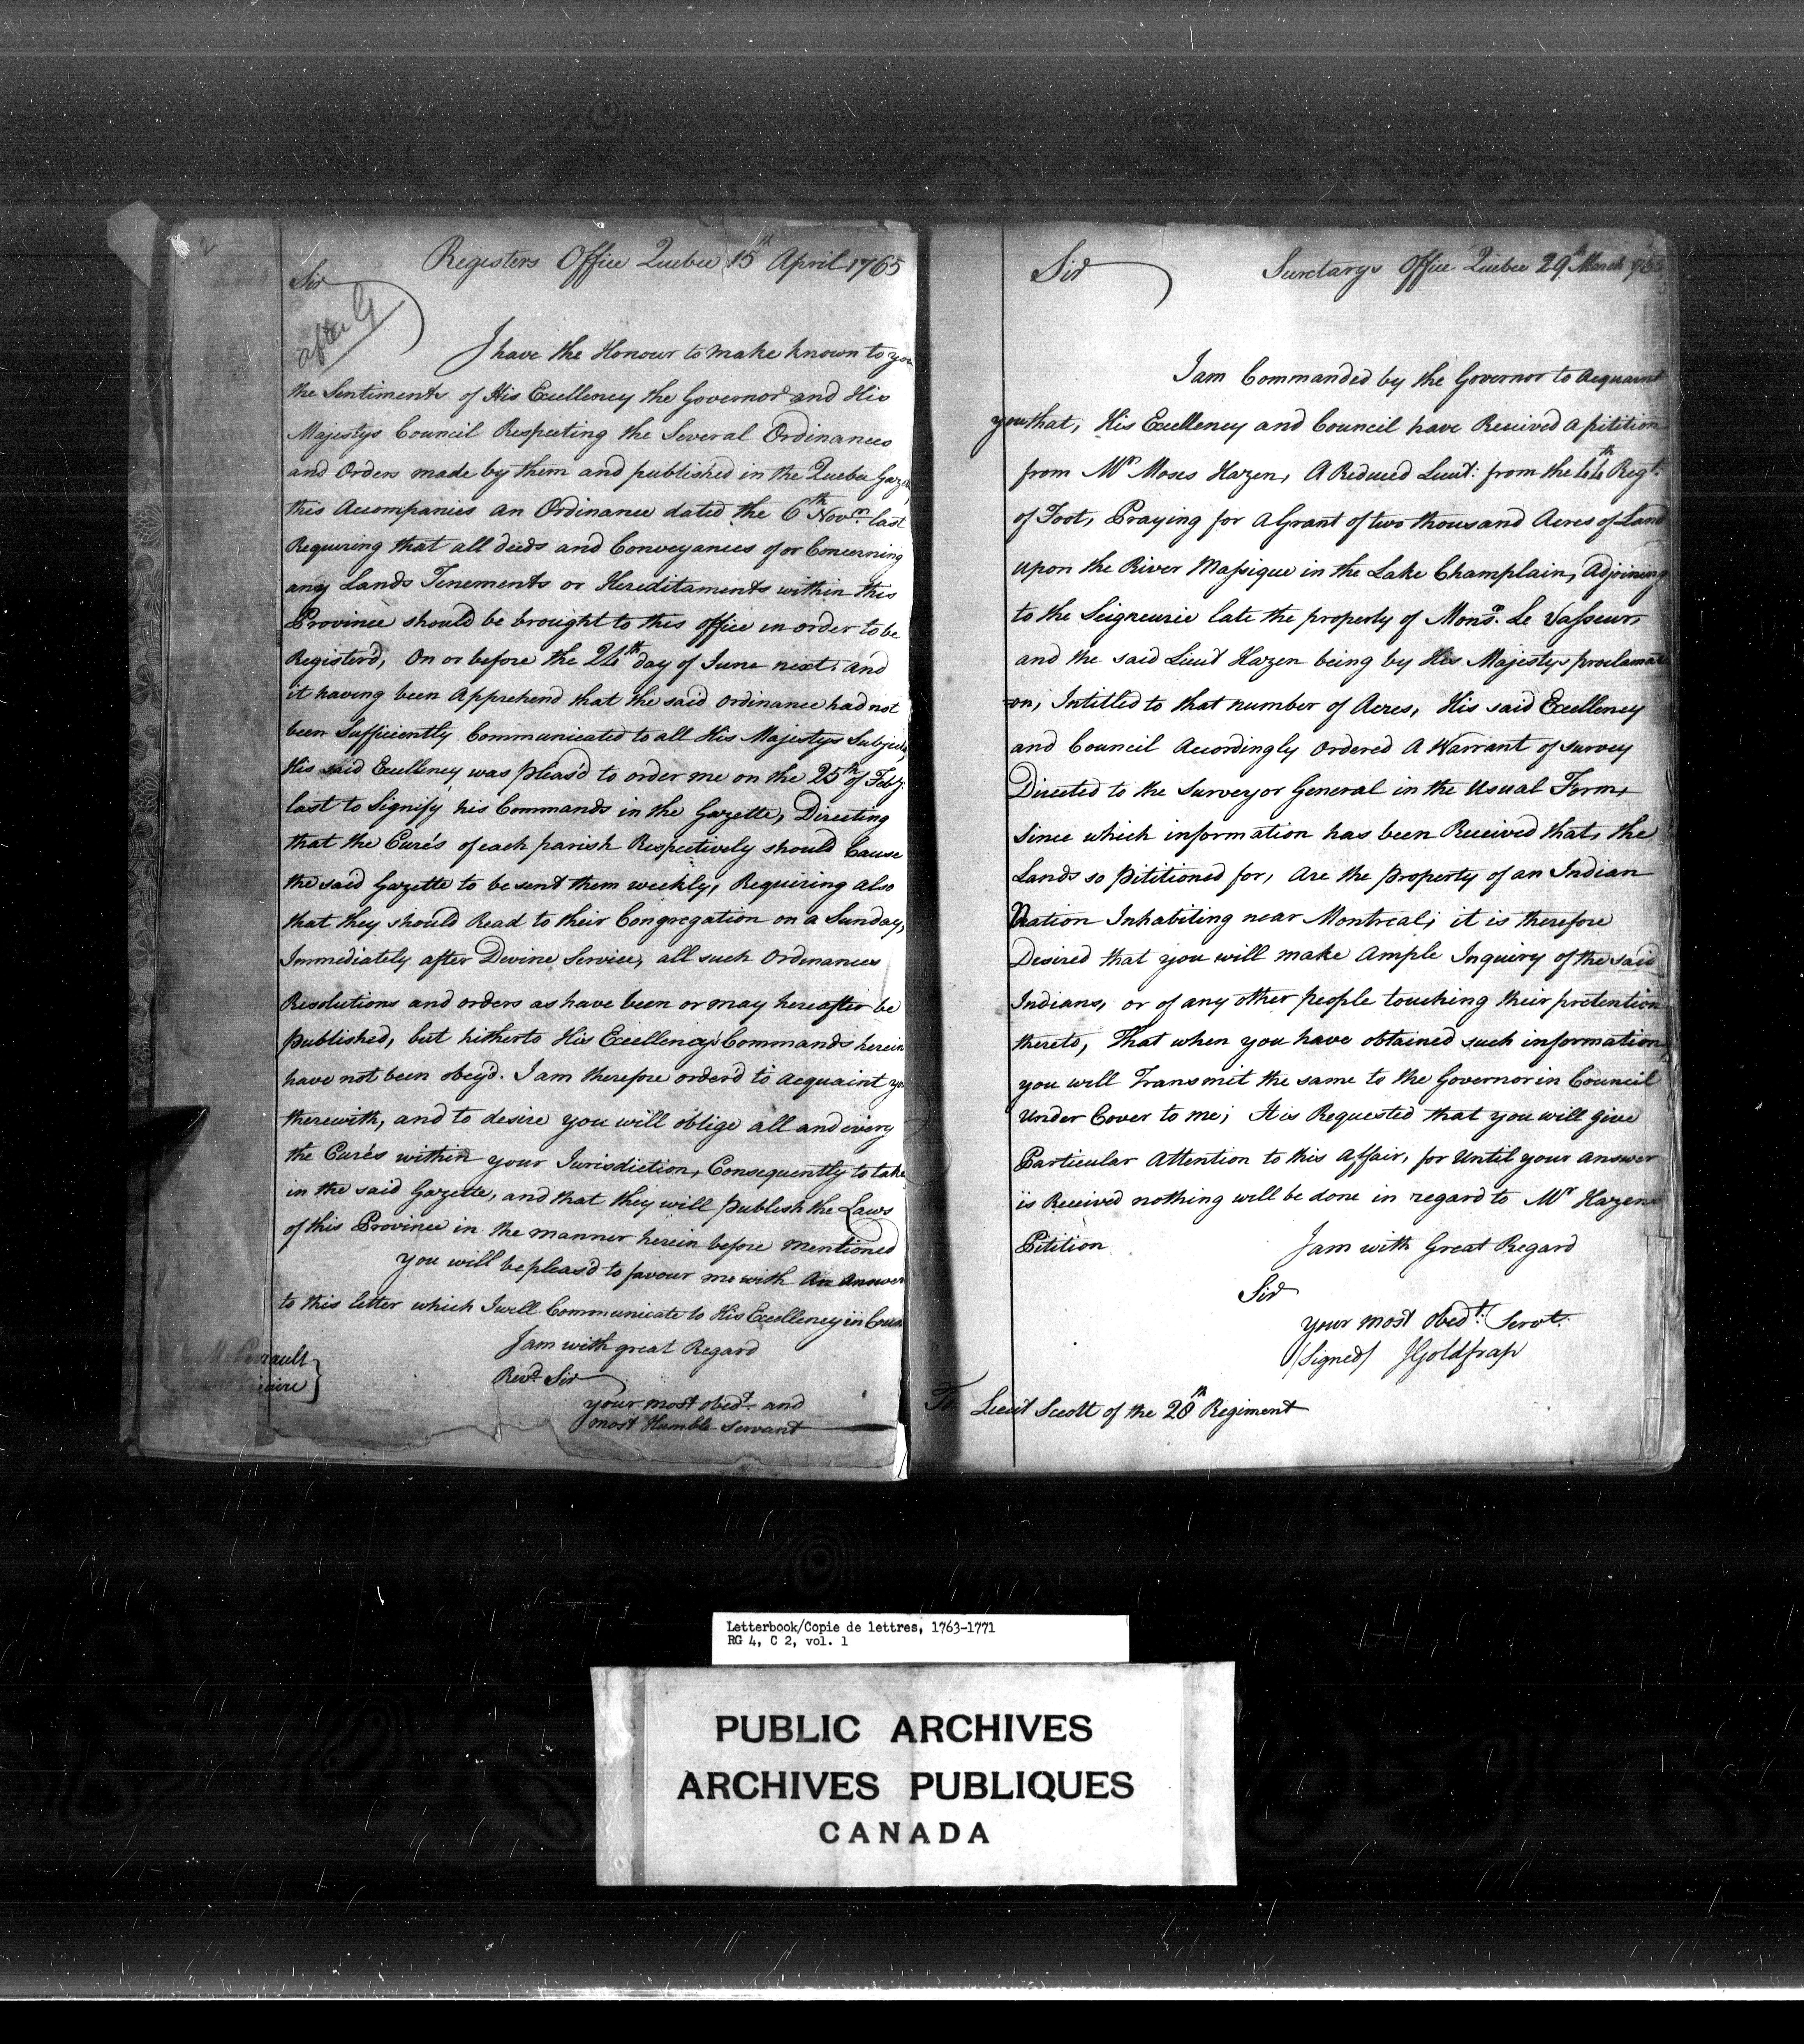 2
Registers Office Quebec 15th April 1765
Sir
after G
I have the Honour to make known to you
the Sentiments of His Excellency the Governor and His
Majestys Council Respecting the Several Ordinances
and Orders made by them and published in the Quebec
this Accompanies an Ordinance dated the 6th Novr. last
Requiring that all deeds and Conveyances of or Concerning
any Lands Tenements or Hereditaments within this
Province should be brought to this office in order to be
Register'd, On or before the 24th day of June next; and
it having been Apprehend that the said ordinance had not
been Sufficiently Communicated to all His Majestys Subjects,
His said Excellency was pleas'd to order me on the 25th of Feby.
last to Signify his Commands in the Gazette, Directing
that the Curé's of each parish Respectively should Cause
the said Gazette to be sent them weekly, Requiring also
that they should Read to their Congregation on a Sunday,
Immediately after Devine Service, all such Ordinances
Resolutions and orders as have been or may hereafter be
published, but hitherto His Excellency's Commands herein
have not been obey'd. I am therefore order'd to acquaint you
therewith, and to desire you will oblige all and every
the Curé's within your Jurisdiction, Consequently to take
in the said Gazette, and that they will publish the Laws
of this Province in the manner herein before mentioned
you will be pleas'd to favour me with An Answer
to this letter which I will Communicate to His Excellency in
I am with great Regard
Revd. Sir
your most obedt. and
most Humble Servant
M. Perrault
Sir
Secretarys Office Quebec 29th March
I am Commanded by the Governor to Acquaint
you that, His Excellency and Council have Received a pitition
from Mr. Moses Hazen, A Reduced Lieut: from the 44th Regt.
of Foot, Praying for A Grant of two thousand Acres of Land
upon the River Massique in the Lake Champlain, Adjoining
to the Seigneurie late the property of Monsr. Le Vasseur,
and the said Lieut Hazen being by His Majestys proclamati
=on, Intitled to that number of Acres, His said Excellency
and Council Accordingly Ordered A Warrant of Survey
Directed to the Surveyor General in the Usual Form,
Since which information has been Received that, the
Lands so pititioned for, Are the property of an Indian
Nation Inhabiting near Montreal; it is therefore
Desired that you will make Ample Inquiry of the said
Indians, or of any other people touching their pretention
thereto, That when you have obtained such information,
you will Transmit the same to the Governor in Council
Under Cover to me; It is Requested that you will give
Particular Attention to this Affair, for Until your Answer
is Received nothing will be done in regard to Mr. Hazens
Pitition
I am with Great Regard
Sir
your most obedt. Servt.
(Signed) JGoldfrap
To Lieut Scott of the 28th Regiment
Letterbook/Copie de lettres, 1763-1771
RG 4, C 2, vol. 1
PUBLIC ARCHIVES
ARCHIVES PUBLIQUES
CANADA